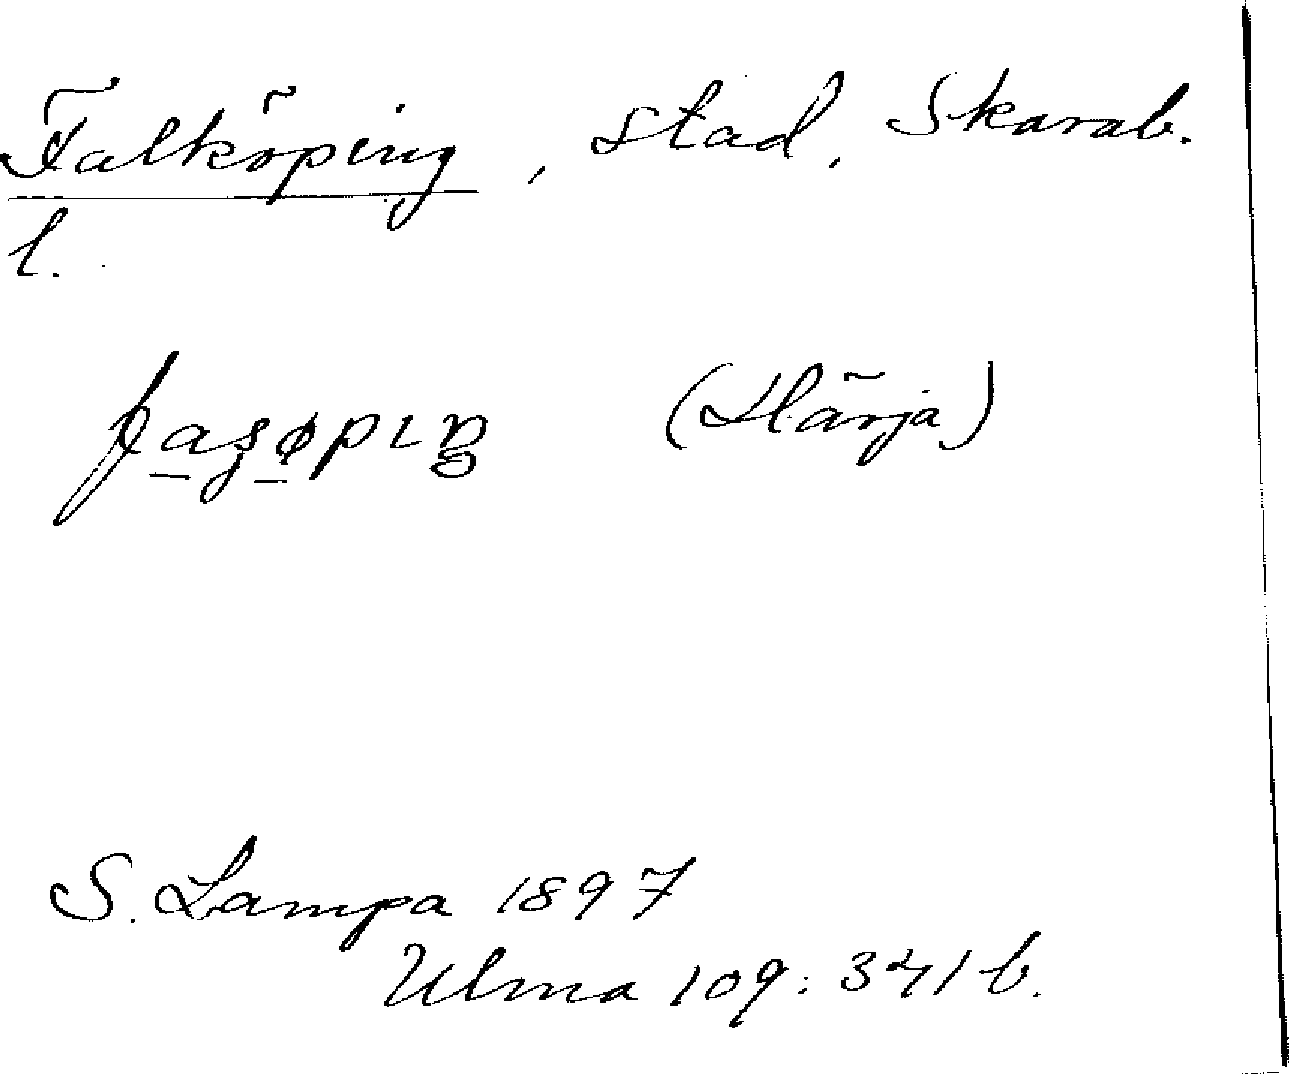 Falköping, stad, Skarab.
l.
(Härja)
S. Lampa 1897
Ulma 109: 341 b.